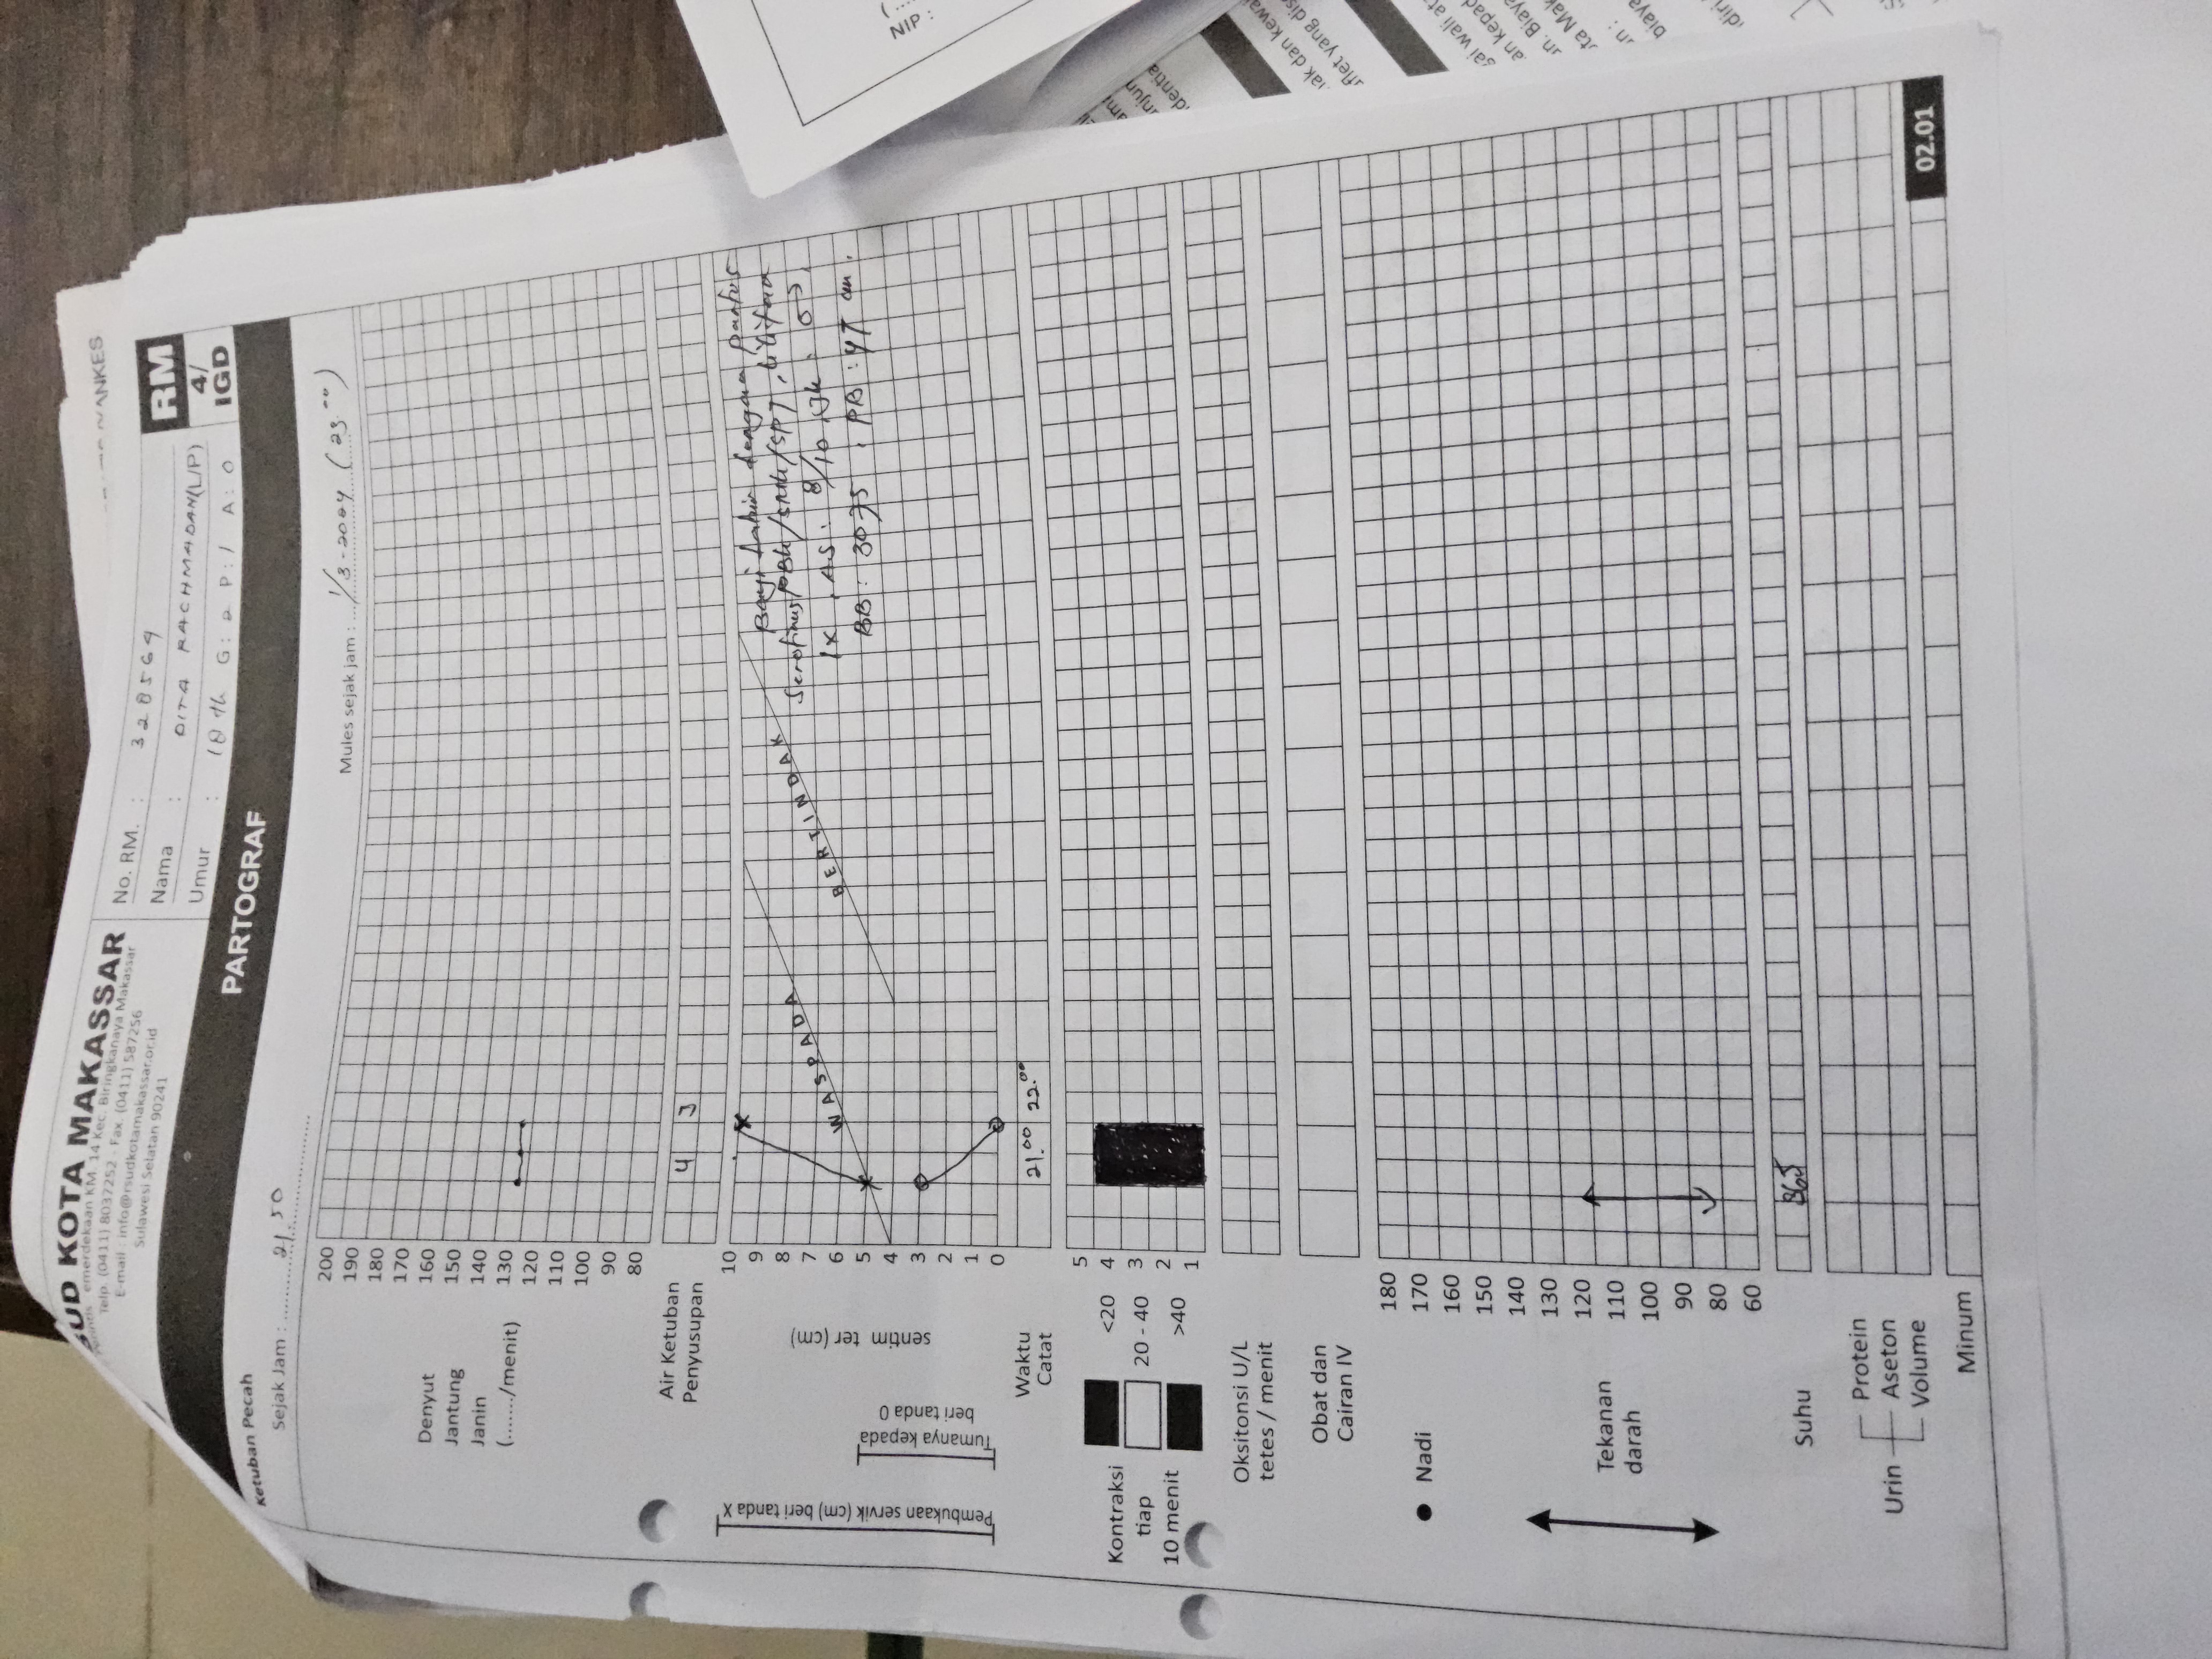 RSUD KOTA MAKASSAR
emerdekaan KM. 14 Kec. Biringkanaya Makassar
Telp. (0411) 8037252 - Fax. (0411) 587256
E-mail : info@rsudkotamakassar.or.id
Sulawesi Selatan 90241
No. RM. : 328569
Nama : DITA RACHMADANI (L/P)
Umur : 18 th G: 2 P: 1 A: 0
RM
4/
IGD
PARTOGRAF
Ketuban Pecah
Sejak Jam : 21.50
Mules sejak jam : 1/3-2024 (23.00)
Denyut
Jantung
Janin
(......./menit)
200
190
180
170
160
150
140
130
120
110
100
90
80
Air Ketuban
Penyusupan
4 3
Pembukaan servik (cm) beri tanda X
Tumanya kepada
beri tanda 0
sentim ter (cm)
10
9
8
7
6
5
4
3
2
1
0
WASPADA
BERTINDAK
Bayi lahir dengan
1x, AS: 8/10, JK:
BB: 3075, PB: 47 cm.
Waktu
Catat
21.00 22.00
Kontraksi
tiap
10 menit
<20
20 - 40
>40
5
4
3
2
1
Oksitonsi U/L
tetes / menit
Obat dan
Cairan IV
Nadi
Tekanan
darah
180
170
160
150
140
130
120
110
100
90
80
60
Suhu
365
Urin
Protein
Aseton
Volume
Minum
02.01
NIP :